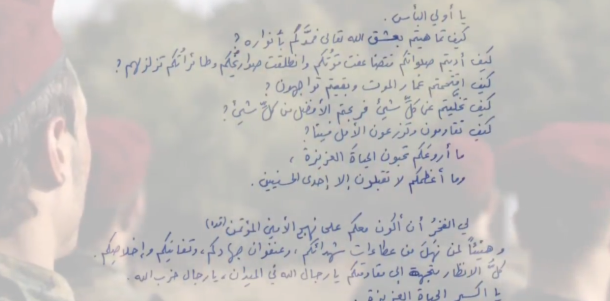 يا أولي البأس.
كيف تماهيتم بعشق الله تعالى فمدَّكم بأنواره؟
كيف أديتم صلواتكم فتضاعفت قوتكم وانطلقت صواريخكم وطائراتكم تزلزلهم؟
كيف اقتحمتم غمار الموت وبقيتم تواجهون؟
كيف تخليتم عن كلِّ شيئ فربحتم الأفضل من كلِّ شيئ؟
كيف تقاومون وتزرعون الأمل فينا؟
ما أروعكم تحبون الحياة العزيزة،
وما أعظمكم لا تقبلون إلا إحدى الحسنيين.
لي الفخرُ أن أكون معكم على نهج الأمين المؤتمن (قده)
وهنيئاً لمن نهلَ من عطاءات شهدائكم، وعنفوان جهادكم، وتفانيكم وإخلاصكم.
كلُّ الأنظار متجهة إلى مقاومتكم يا رجال الله في الميدان، يا رجال حزب الله.
يا إكسير الحياة العزيزة